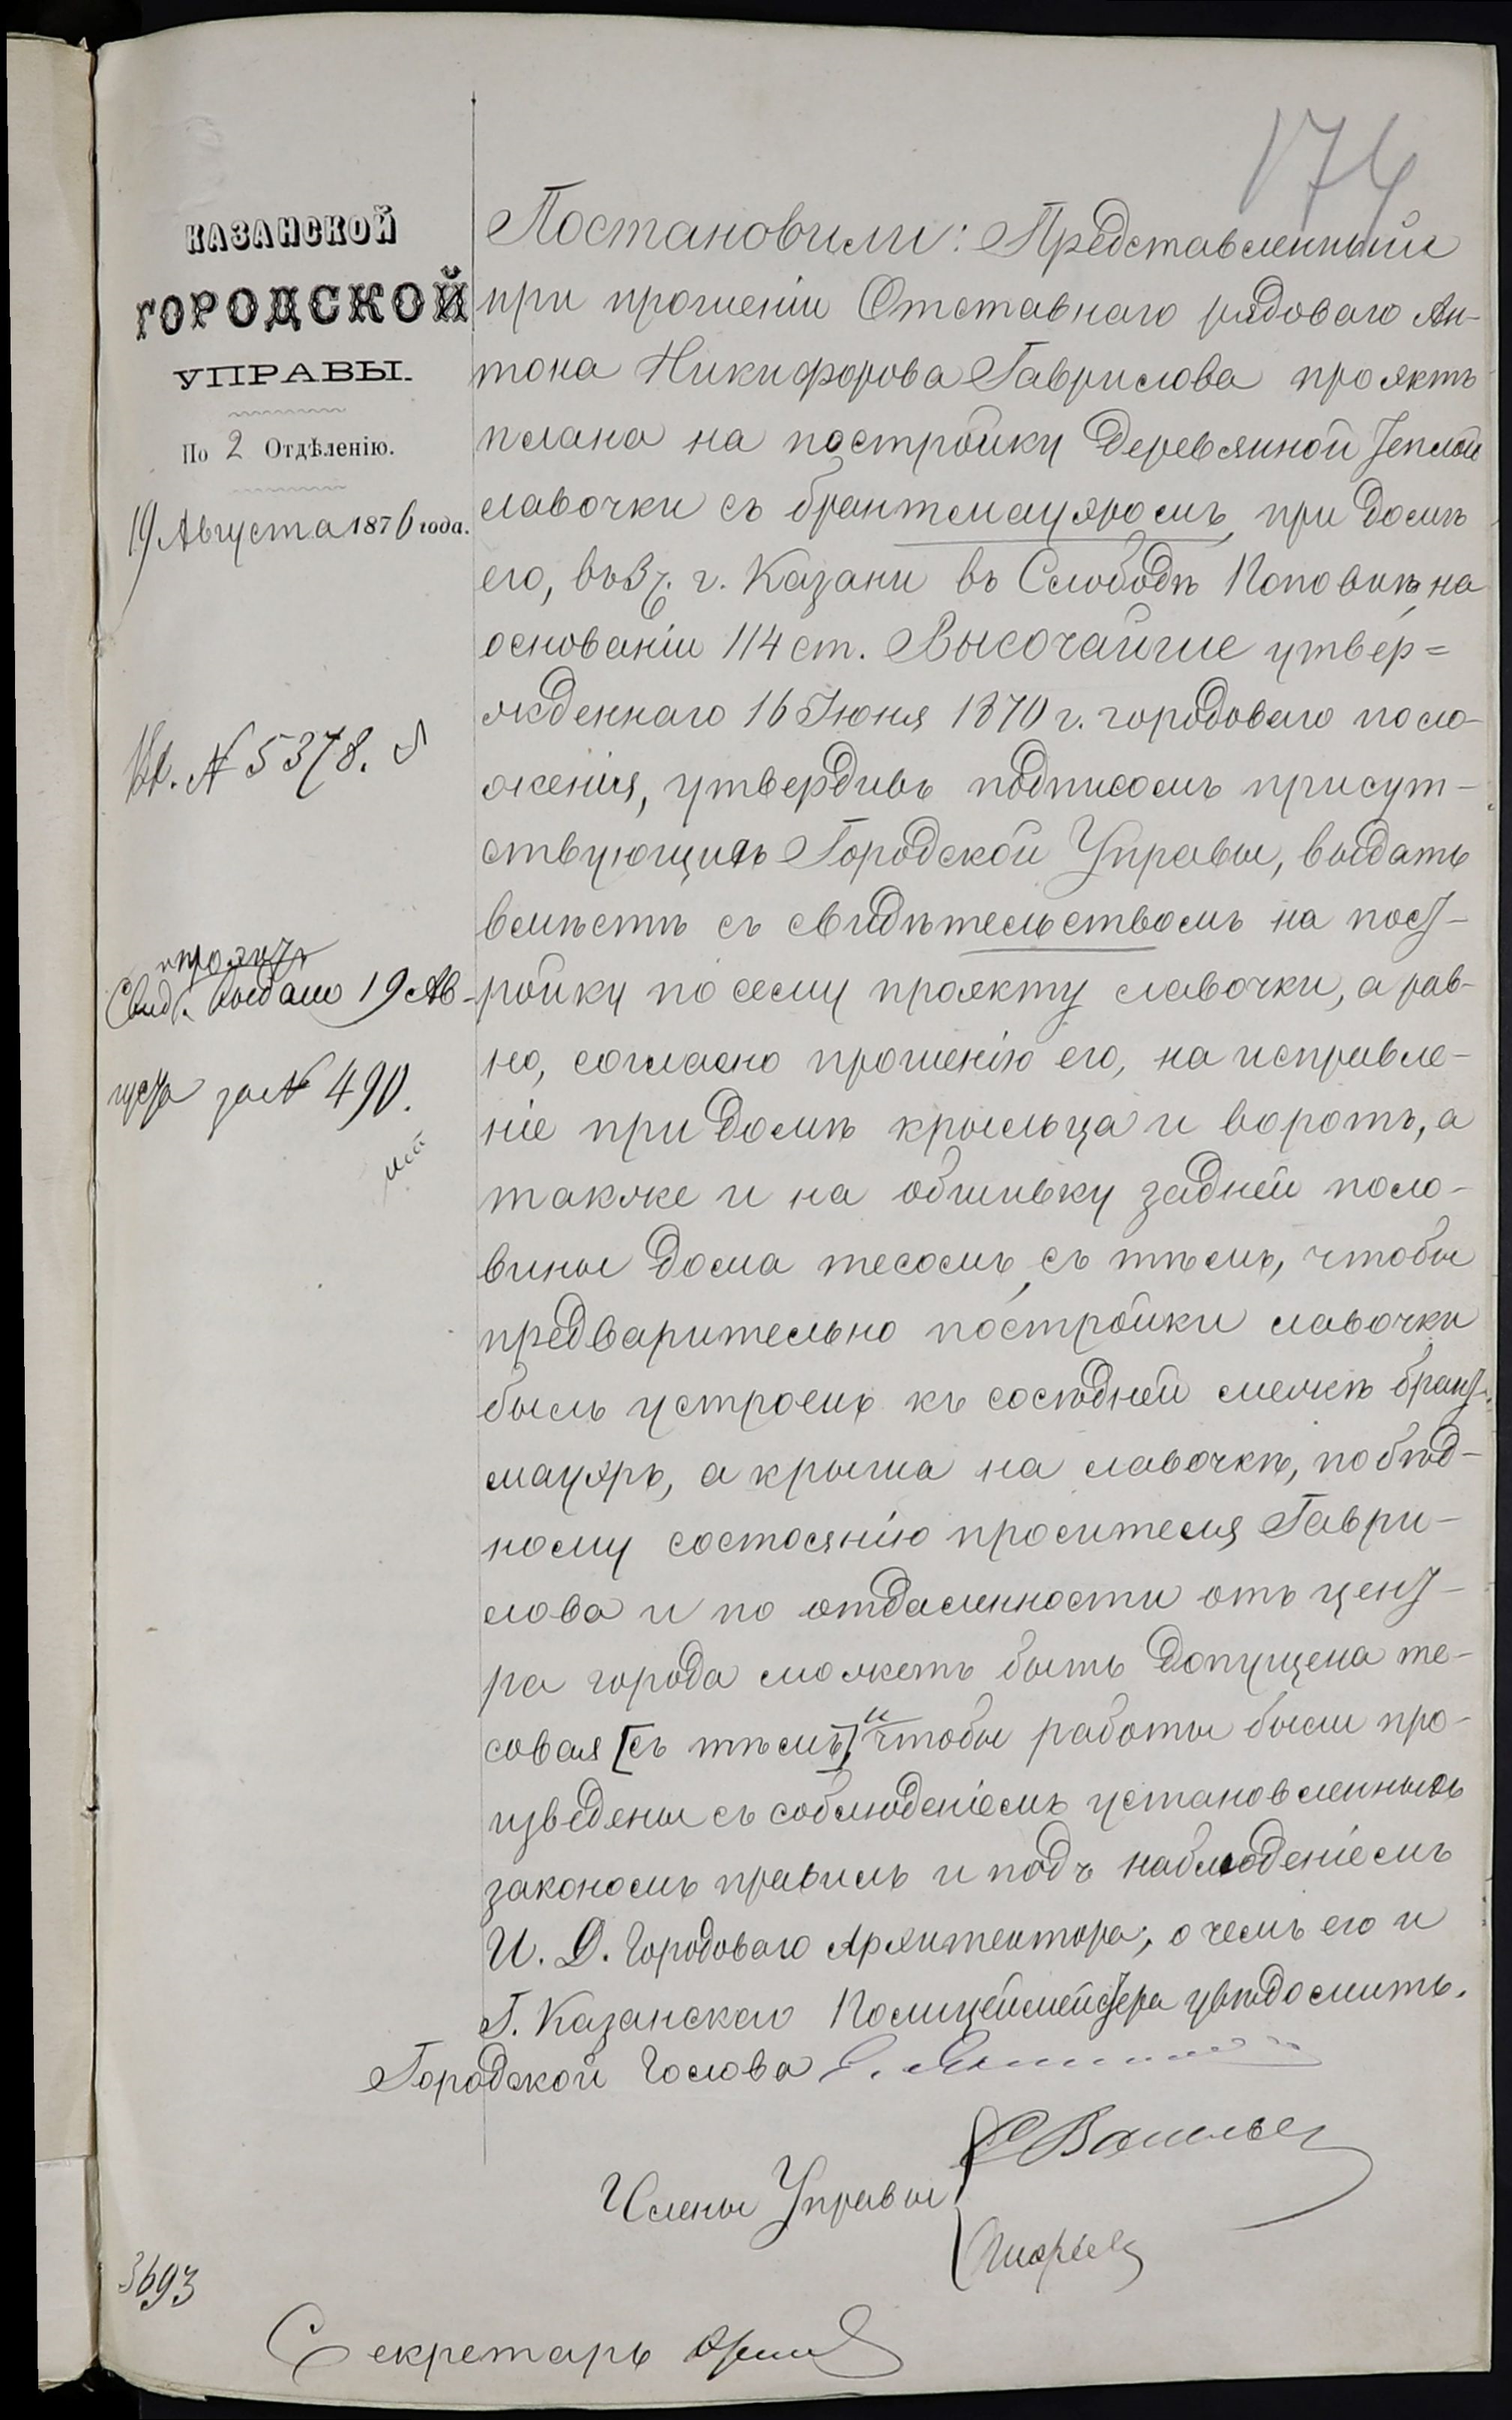 174
КАЗАНСКОЙ
ГОРОДСКОЙ
УПРАВЫ.
По 2 Отдѣленію.
19 Августа 1876 года.
Вх. № 5378.
и проэктъ
Свид. выдано 19 Ав-
густа за № 490.
3693
Постановили: Представленный
при прошеніи Отставнаго рядоваго Ан-
тона Никифорова Гаврилова проэктъ
плана на постройку деревянной теплой
лавочки съ брантмауэромъ, при домѣ
его, въ 3 ч. г. Казани въ Слободѣ Поповкѣ, на
основаніи 114 ст. Высочайше утвер=
жденнаго 16 Іюня 1870 г. городоваго поло-
женія, утвердивъ подписомъ присут-
ствующихъ Городской Управы, выдать
вмѣстѣ съ свидѣтельствомъ на пост-
ройку по сему проэкту лавочки, а рав-
но, согласно прошенію его, на исправле-
ніе при домѣ крыльца и воротъ, а
также и на обшивку задней поло-
вины дома тесомъ, съ тѣмъ, чтобы
предварительно постройки лавочки
былъ устроенъ къ сосѣдней межѣ брант-
мауэръ, а крыша на лавочкѣ, по бѣд-
ному состоянію просителя Гаври-
лова и по отдаленности отъ цент-
ра города можетъ быть допущена те-
совая [съ тѣмъ], и чтобы работы были про-
изведены съ соблюденіемъ установленныхъ
закономъ правилъ и подъ наблюденіемъ
И. Д. Городоваго Архитектора; о чемъ его и
Г. Казанскаго Полицеймейстера увѣдомить.
Городской Голова
Члены Управы
Васильев
Секретарь